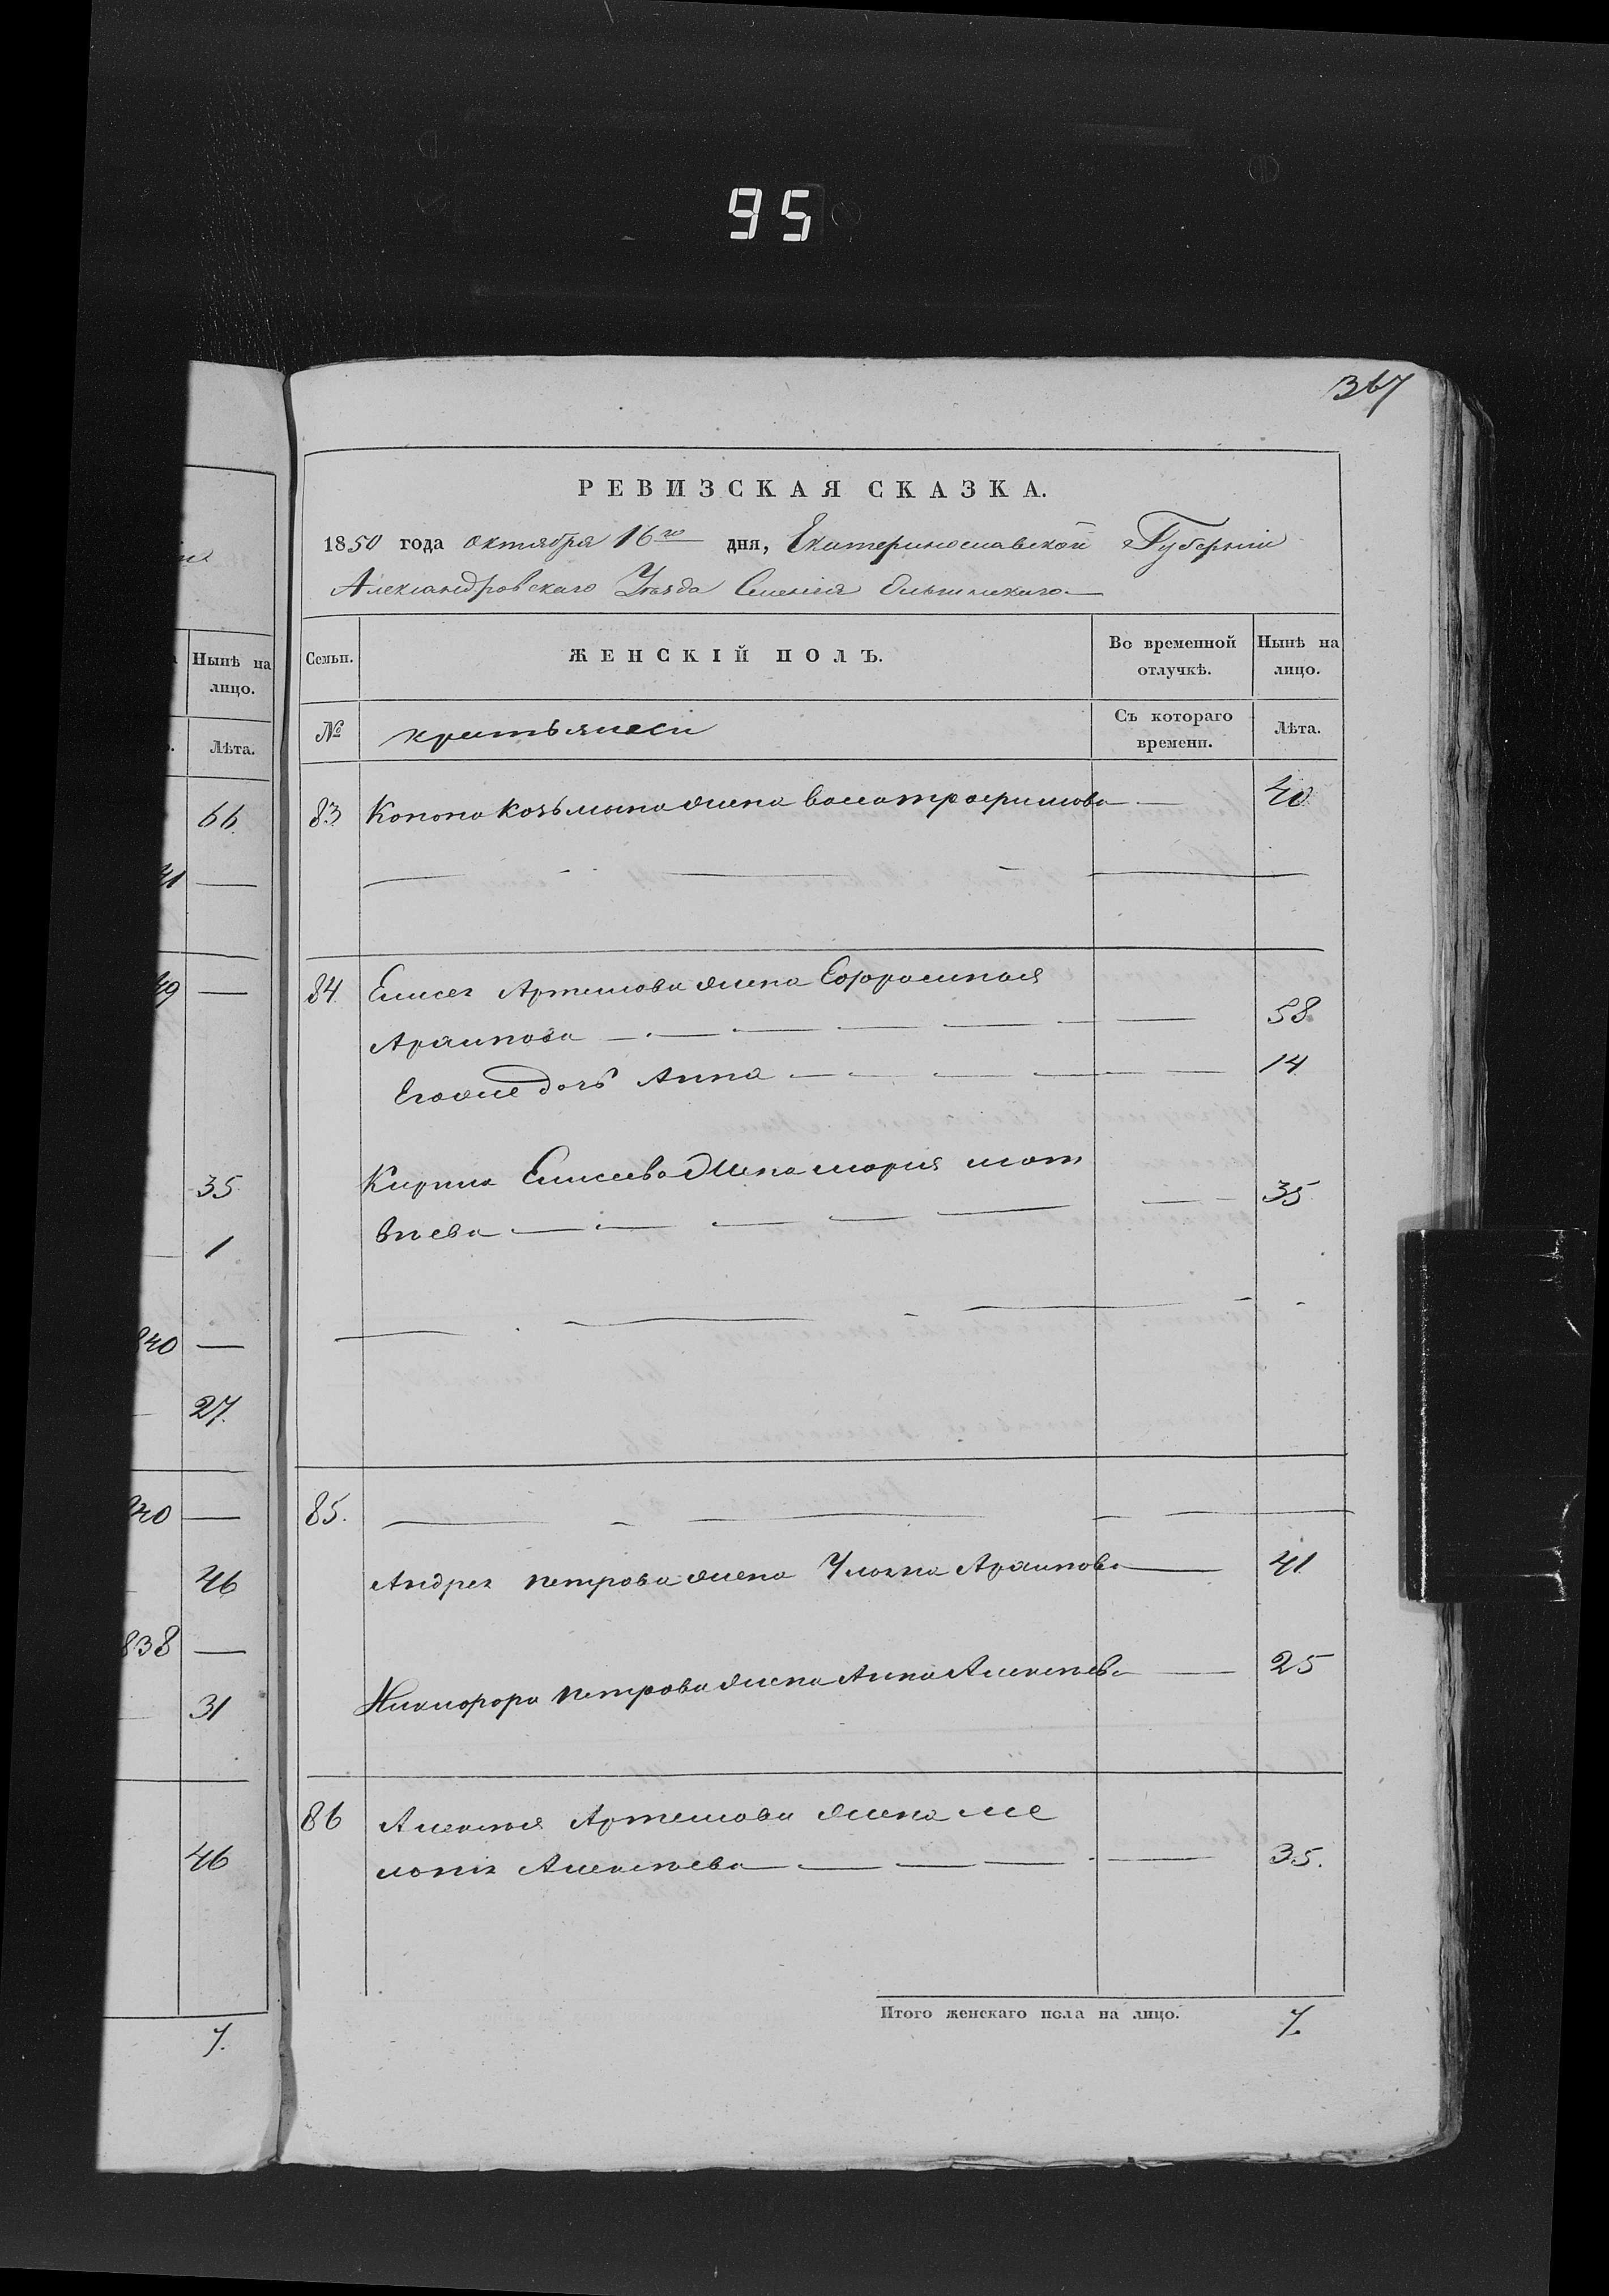 95
367
РЕВИЗСКАЯ СКАЗКА.
1850 года октября 16го дня, Екатеринославской Губерніи
Александровскаго Уѣзда Селенія
Нынѣ на лицо.
Лѣта.
66
41 —
49 —
35
1
840 —
27.
840 —
46
838 —
31
46
7.
Семьи. ЖЕНСКІЙ ПОЛЪ. Во временной отлучкѣ. Нынѣ на лицо.
№ Съ котораго времени. Лѣта.
83 Конона Козьмина жена Васса Трофимова — 40
84. Елисея Артемова жена Ефросинья
Архипова — 58
Егоже дочь Анна — 14
Кирила Елисеева жена Марія Мат
вѣева — 35
85. —
Андрея Петрова жена Улояна Архипова — 41
Никифора Петрова жена Анна Алексѣева — 25
86 Алексѣя Артемова жена Ме
ланія Алексѣева — 35.
Итого женскаго пола на лицо. 7.